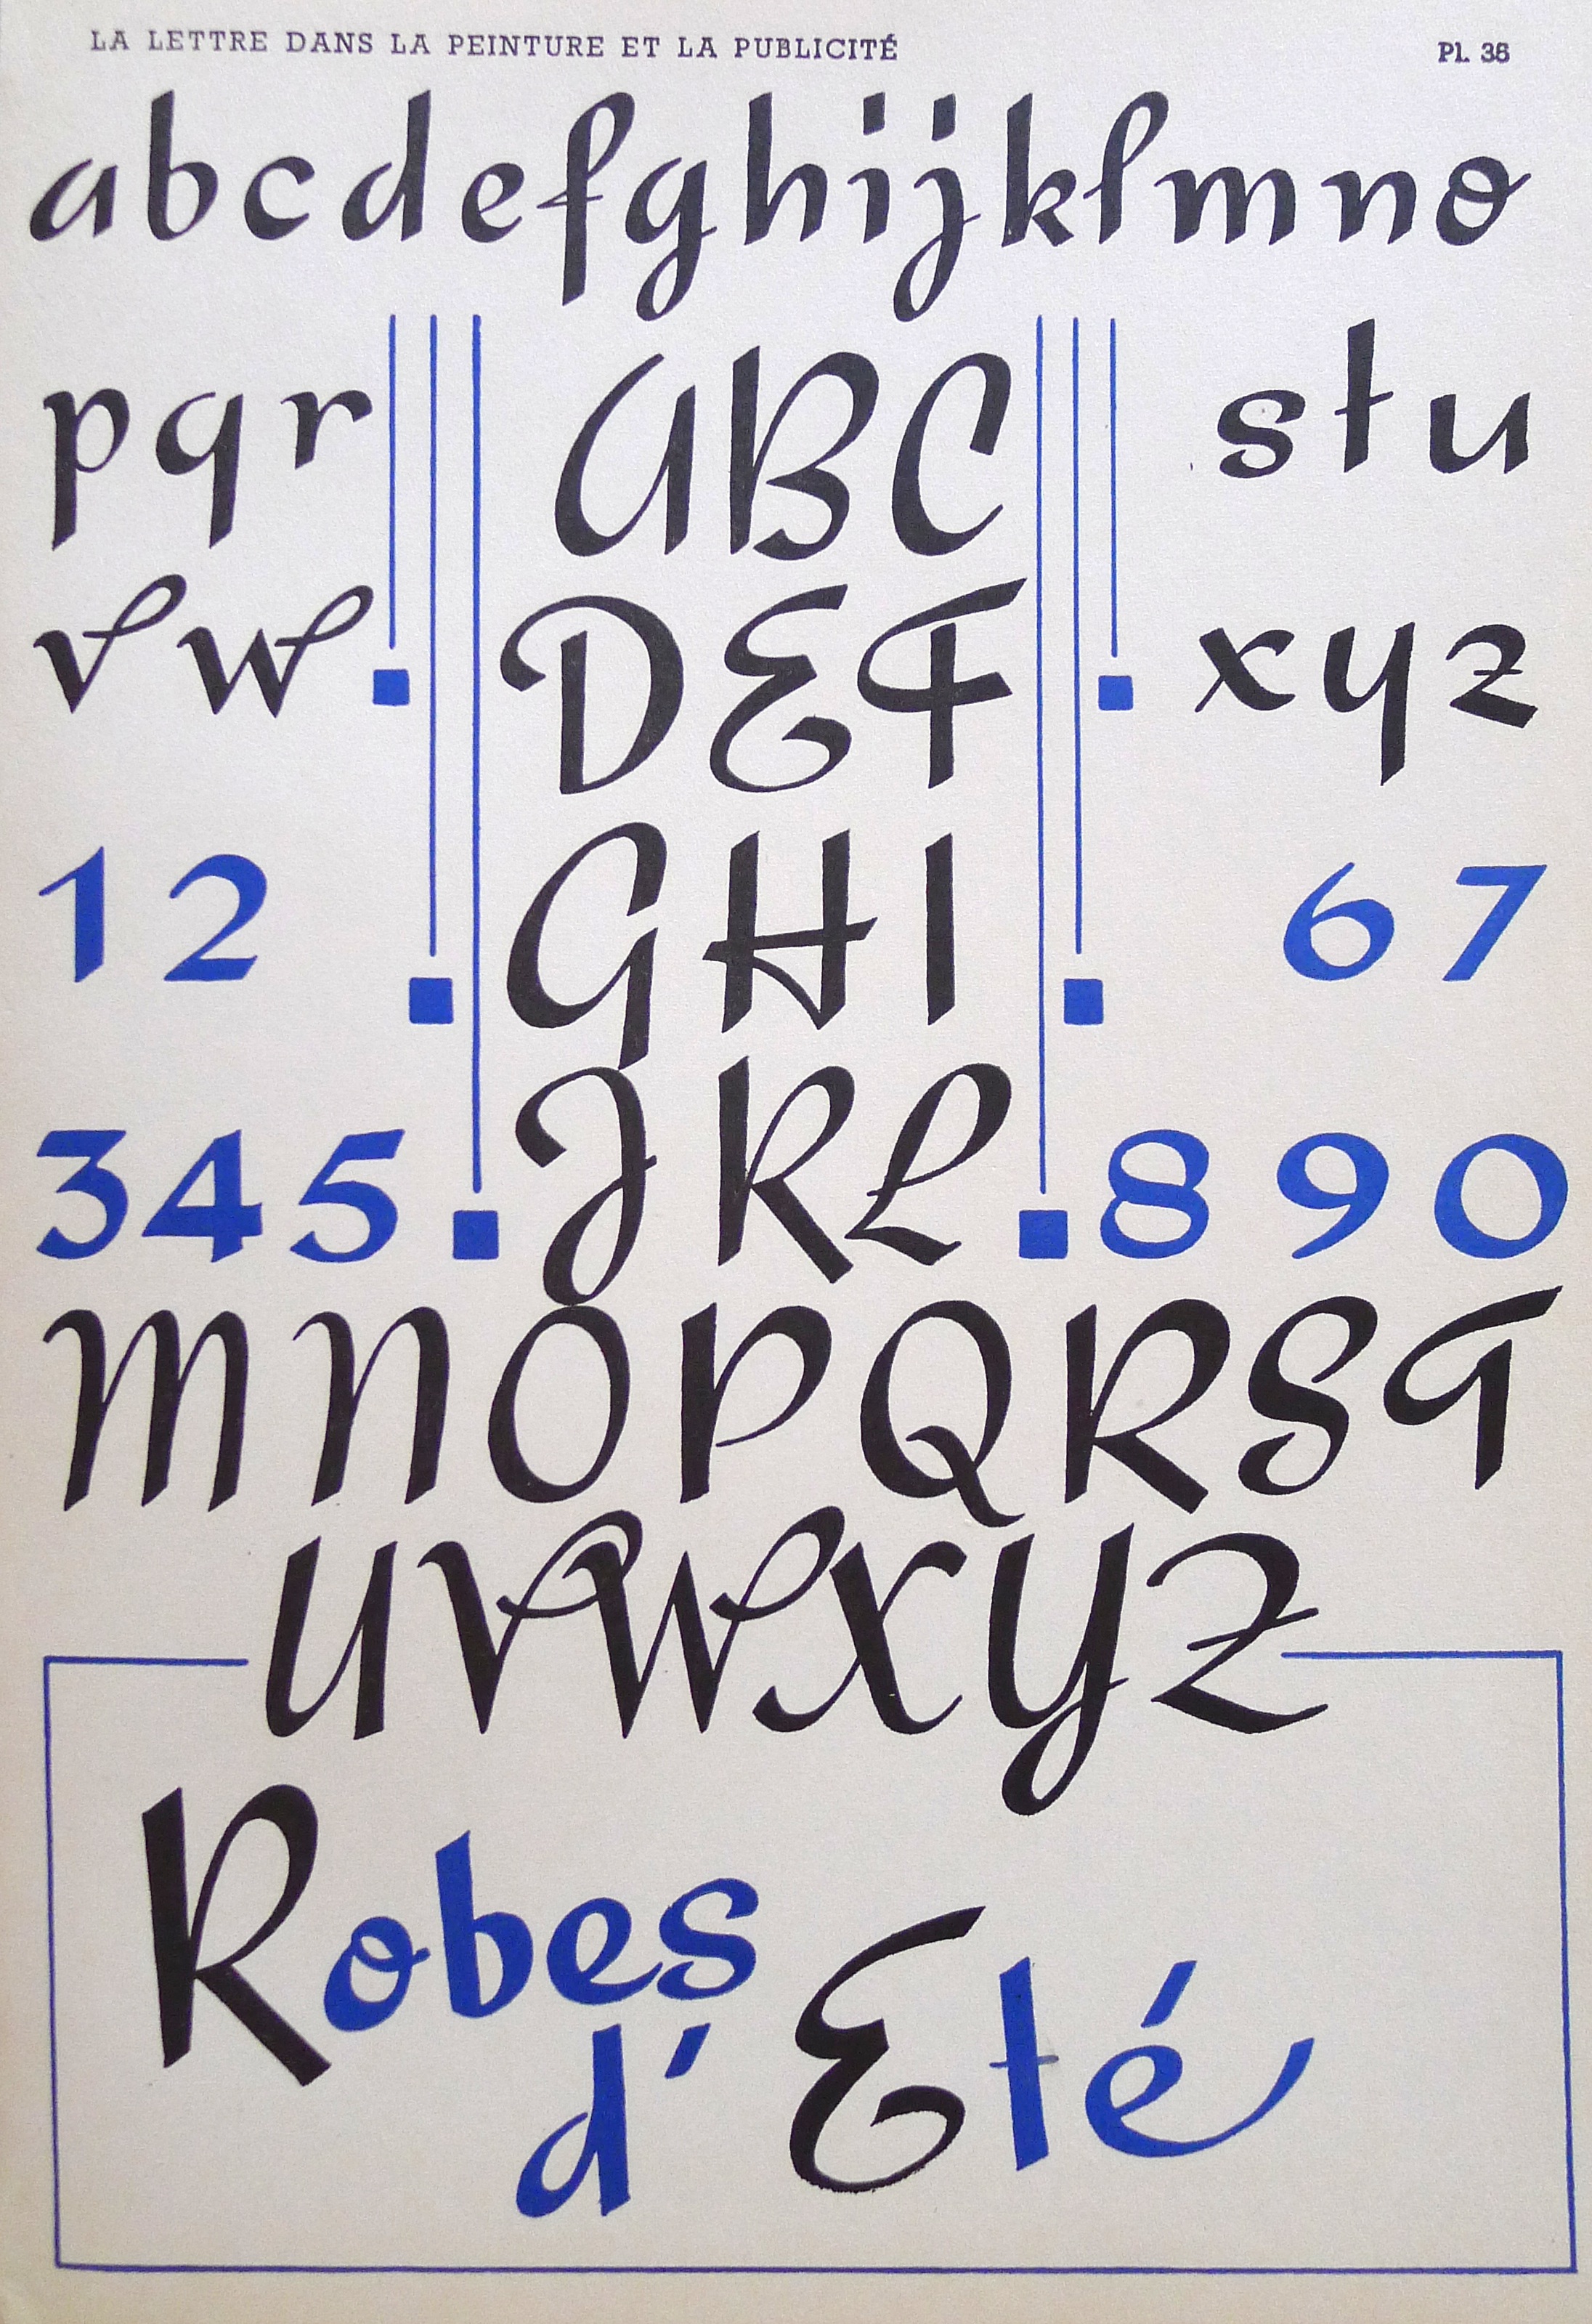 LA LETTRE DANS LA PEINTURE ET LA PUBLICITÉ
Pl. 36
abcdefghijklmno
pqr ABC stu
vw DEF xyz
12 GHI 67
345 JKL 890
MNOPQRST
UVWXYZ
Robes
d'Eté